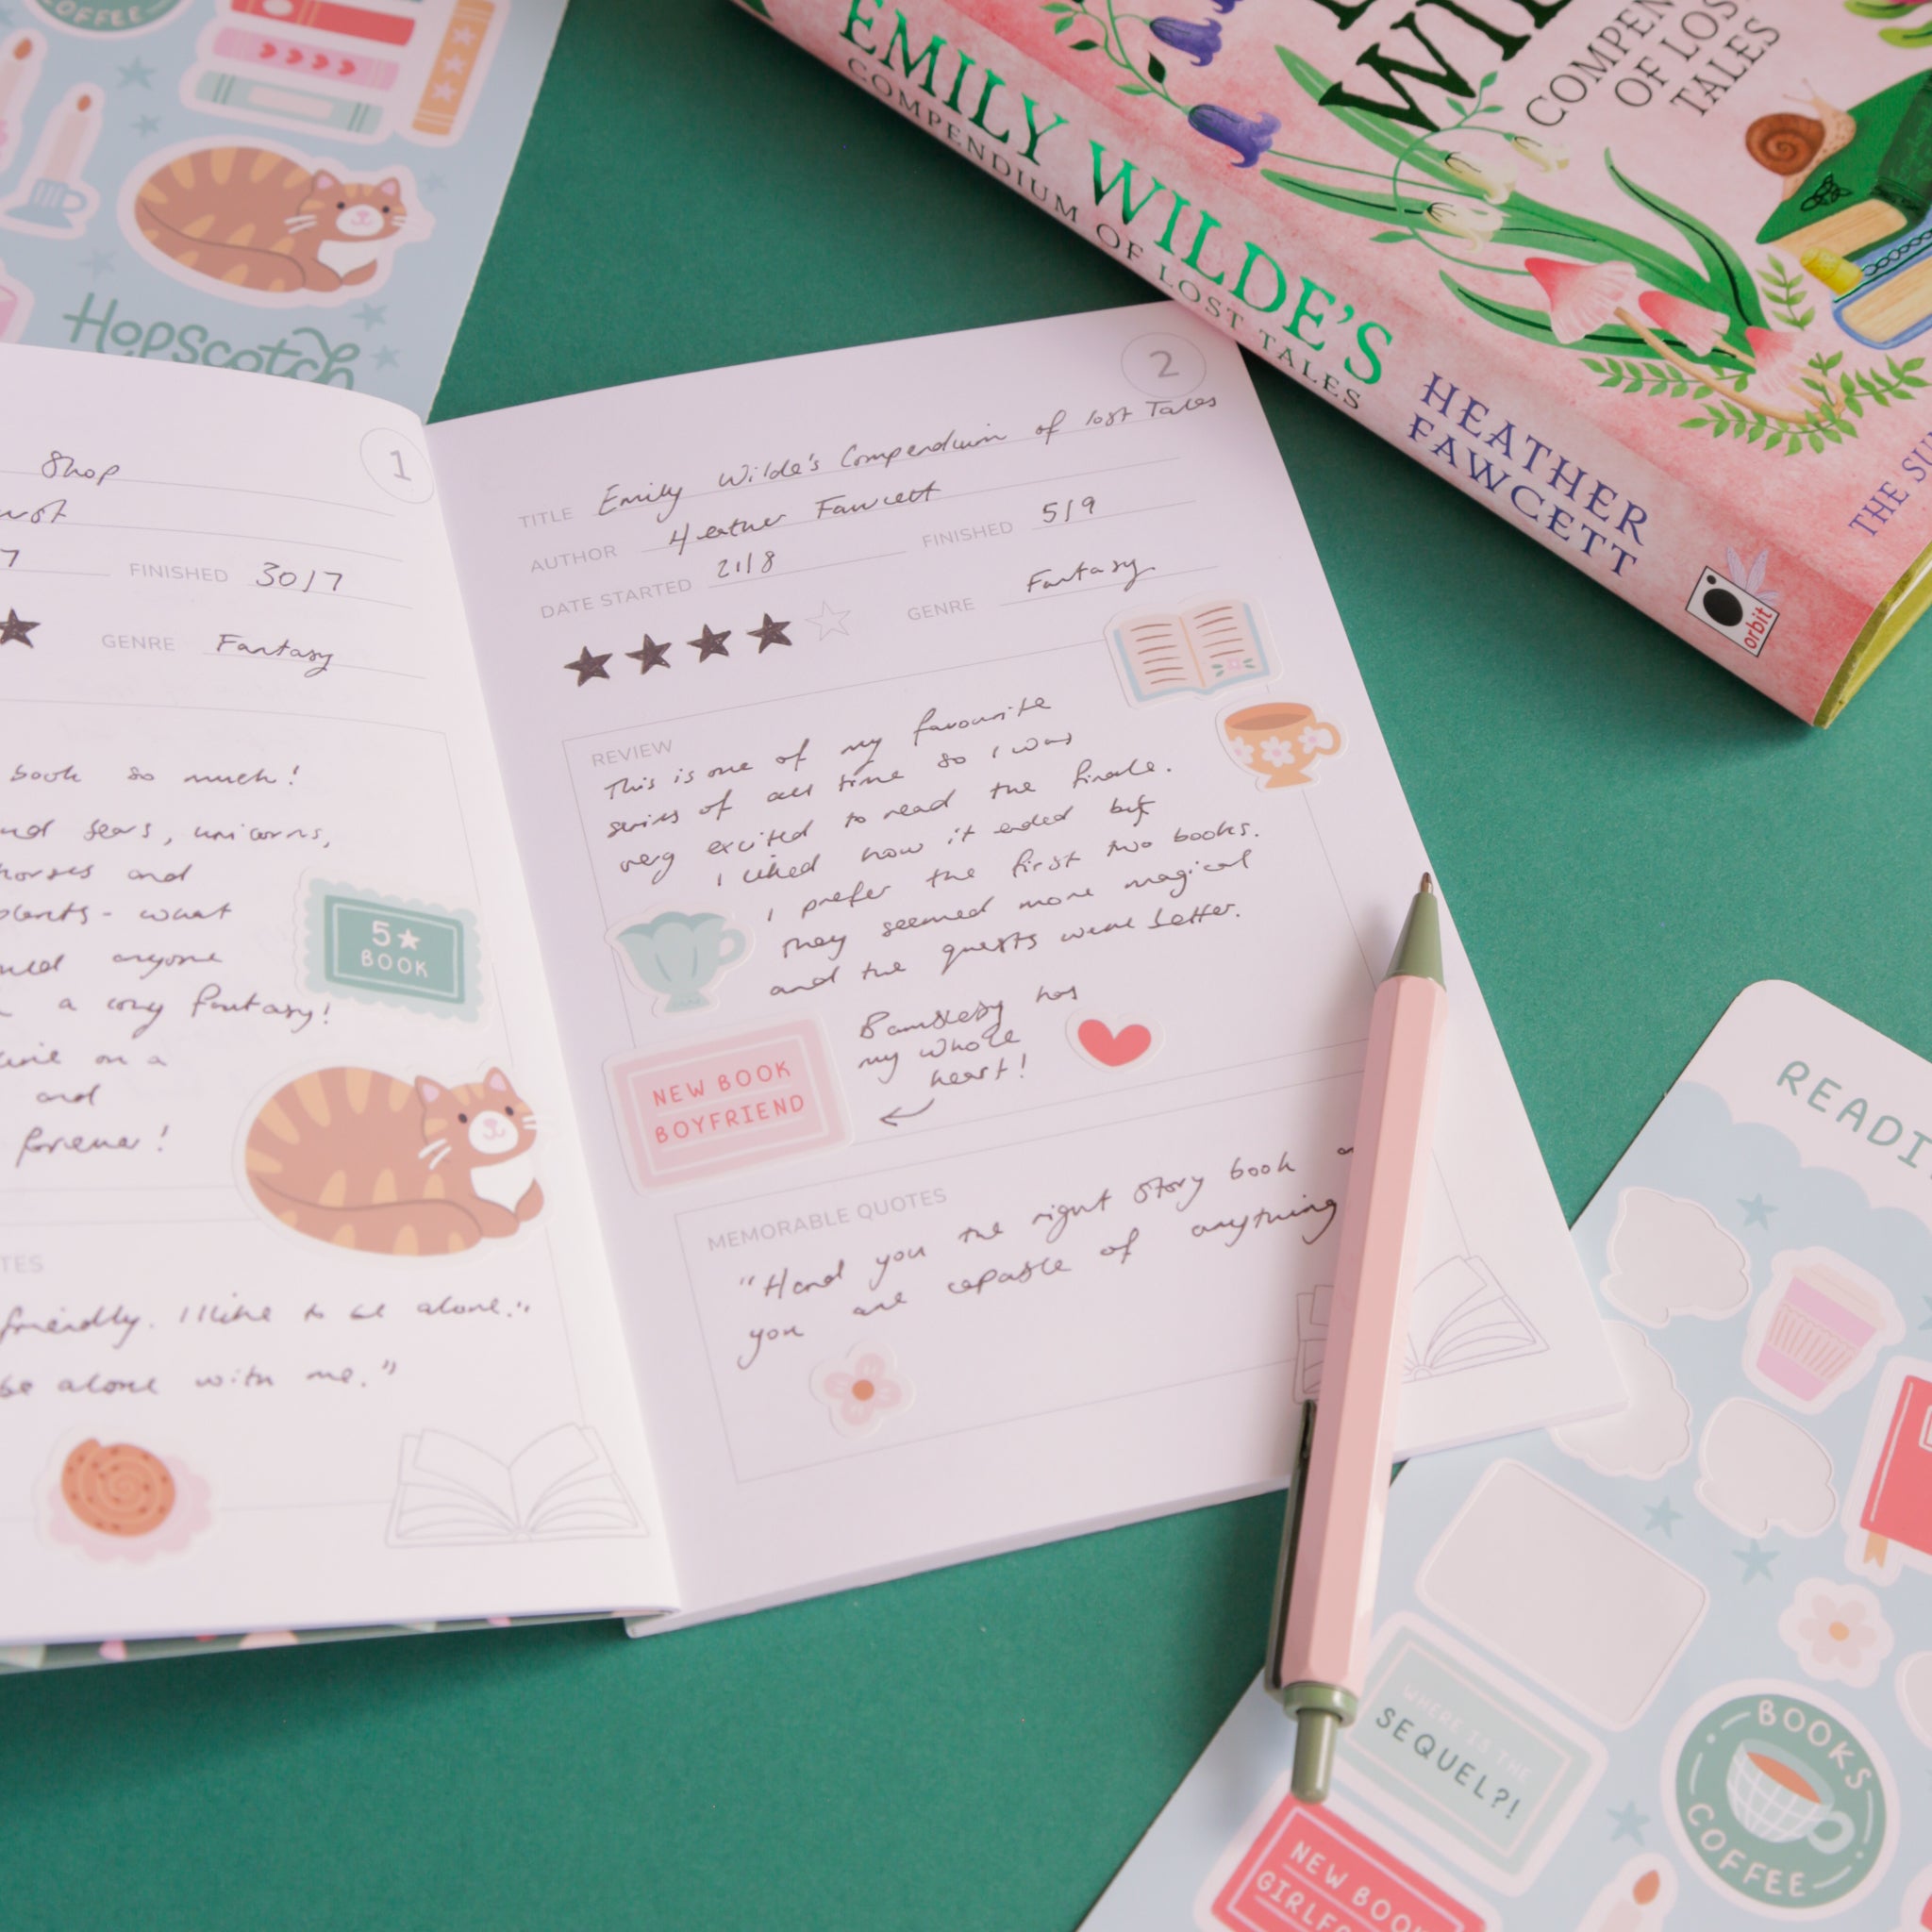 COFFEE
Hopscotch
EMILY WILDE'S
COMPENDIUM OF LOST TALES
HEATHER
FAWCETT
orbit
COMPEN
OF LOS
TALES
THE SU
1
Shop
7 FINISHED 30/7
GENRE Fantasy
book so much!
unicorns,
horses and
plants - what
anyone
a cosy fantasy!
on a
and
forever!
5★
BOOK
TES
friendly. I like to be alone."
be alone with me."
2
TITLE Emily Wilde's Compendium of lost Tales
AUTHOR Heather Fawcett
DATE STARTED 21/8 FINISHED 5/9
GENRE Fantasy
REVIEW
This is one of my favourite
series of all time so I was
very excited to read the finale.
I liked how it ended but
I prefer the first two books.
They seemed more magical
and the quests were better.
Bambleby has
my whole
heart!
NEW BOOK
BOYFRIEND
MEMORABLE QUOTES
"Hand you the right story book
you are capable of anything
READI
WHERE IS THE
SEQUEL?!
NEW BOOK
GIRLF
BOOKS
COFFEE